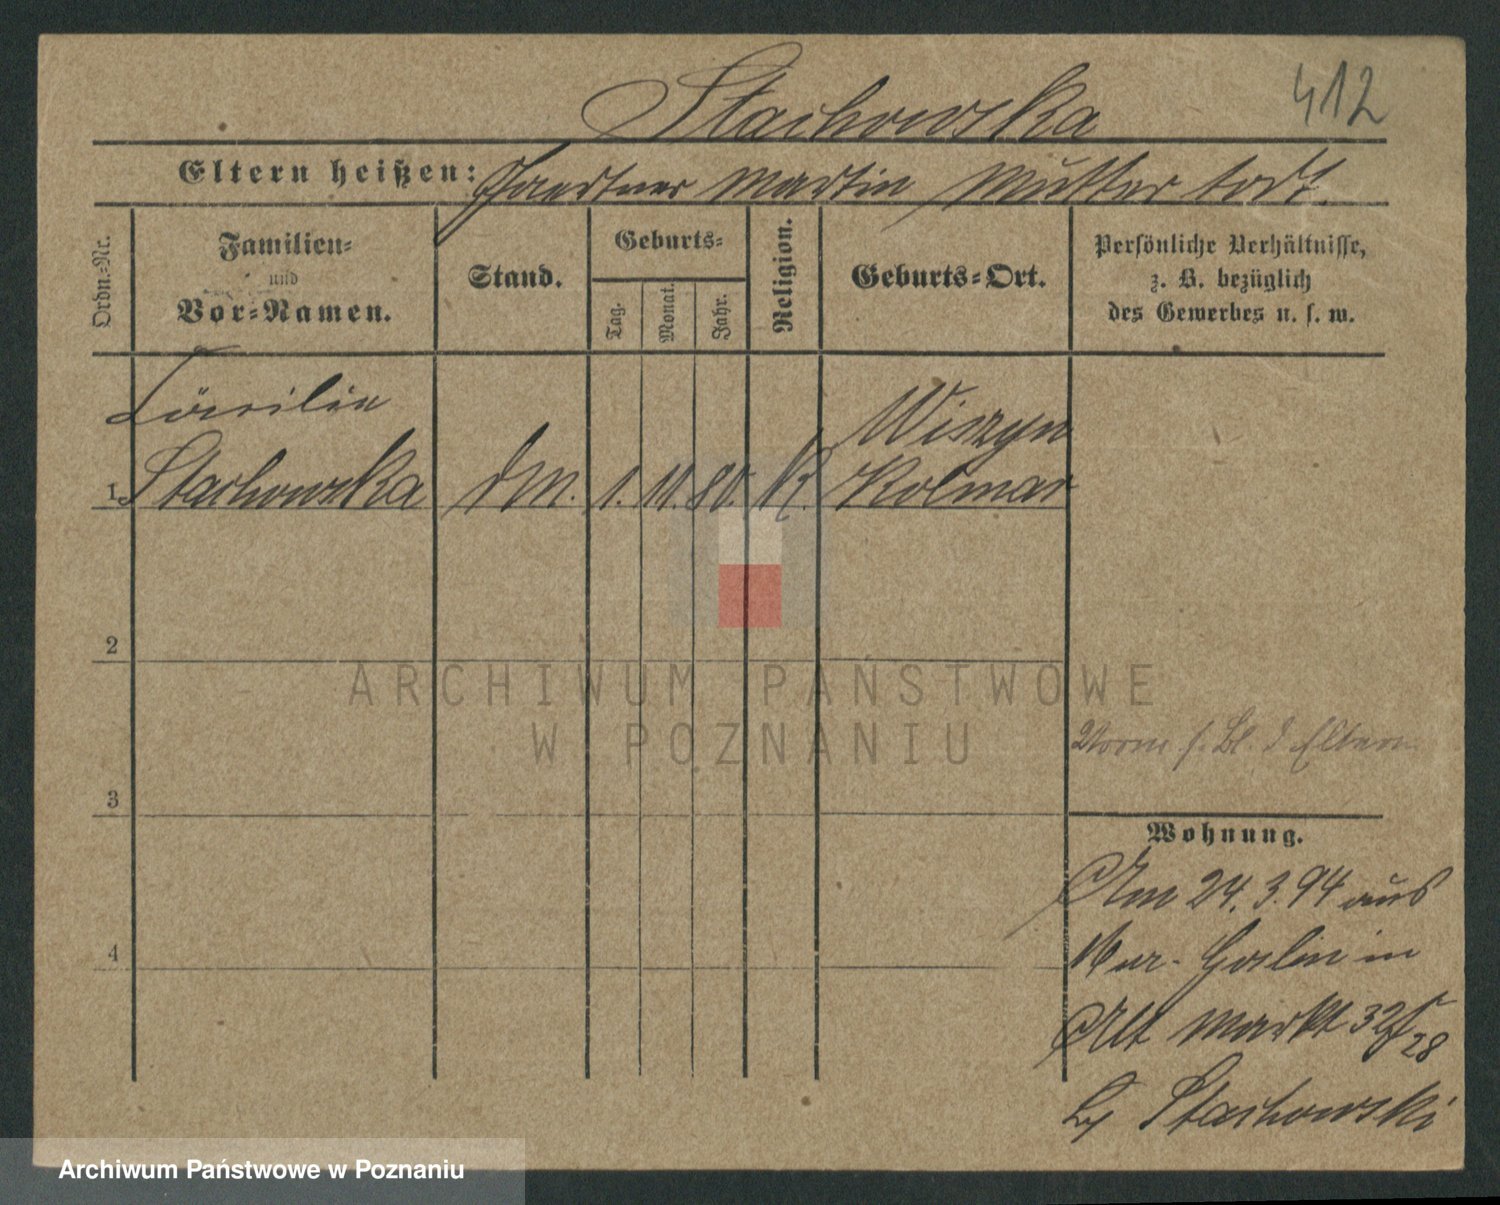 Stachowska
412
Eltern heißen: Gaertner Martin Mutter todt.
Ordn.-Nr.
Familien-
und
Vor-Namen.
Stand.
Geburts-
Tag.
Monat.
Jahr.
Religion.
Geburts-Ort.
Persönliche Verhältnisse,
z. B. bezüglich
des Gewerbes u. s. w.
Cäcilie
Wiszyn
1 Stachowska dM. 1. 11. 80. K. Kolmar
2
ARCHIWUM PAŃSTWOWE
W POZNANIU
Vorm s. Bl. d Eltern
3
Wohnung.
Am 24.3.94 aus
Mur. Goslin in
4
Alt Markt 32
28
by Stachowski
Archiwum Państwowe w Poznaniu